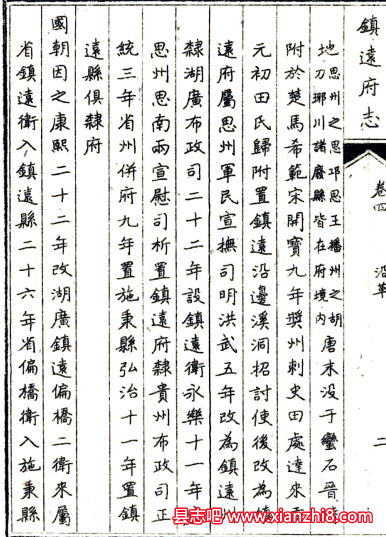 鎮遠府志 卷四 沿革 二
地思州之思邛思王播州之胡
刀瑯川諸廢縣皆在府境内
唐末没于蠻石晉
附於楚馬希範宋開寶九年獎州刺史田處達來
元初田氏歸附置鎮遠沿邊溪洞招討使後改為鎮
遠府屬思州軍民宣撫司明洪武五年改為鎮遠州
隸湖廣布政司二十二年設鎮遠衛永樂十一年
思州思南兩宣慰司析置鎮遠府隸貴州布政司正
統三年省州併府九年置施秉縣弘治十一年置鎮
遠縣俱隸府
國朝因之康熙二十二年改湖廣鎮遠偏橋二衛來屬
省鎮遠衛入鎮遠縣二十六年省偏橋衛入施秉縣
县志吧 www.xianzhi8.com